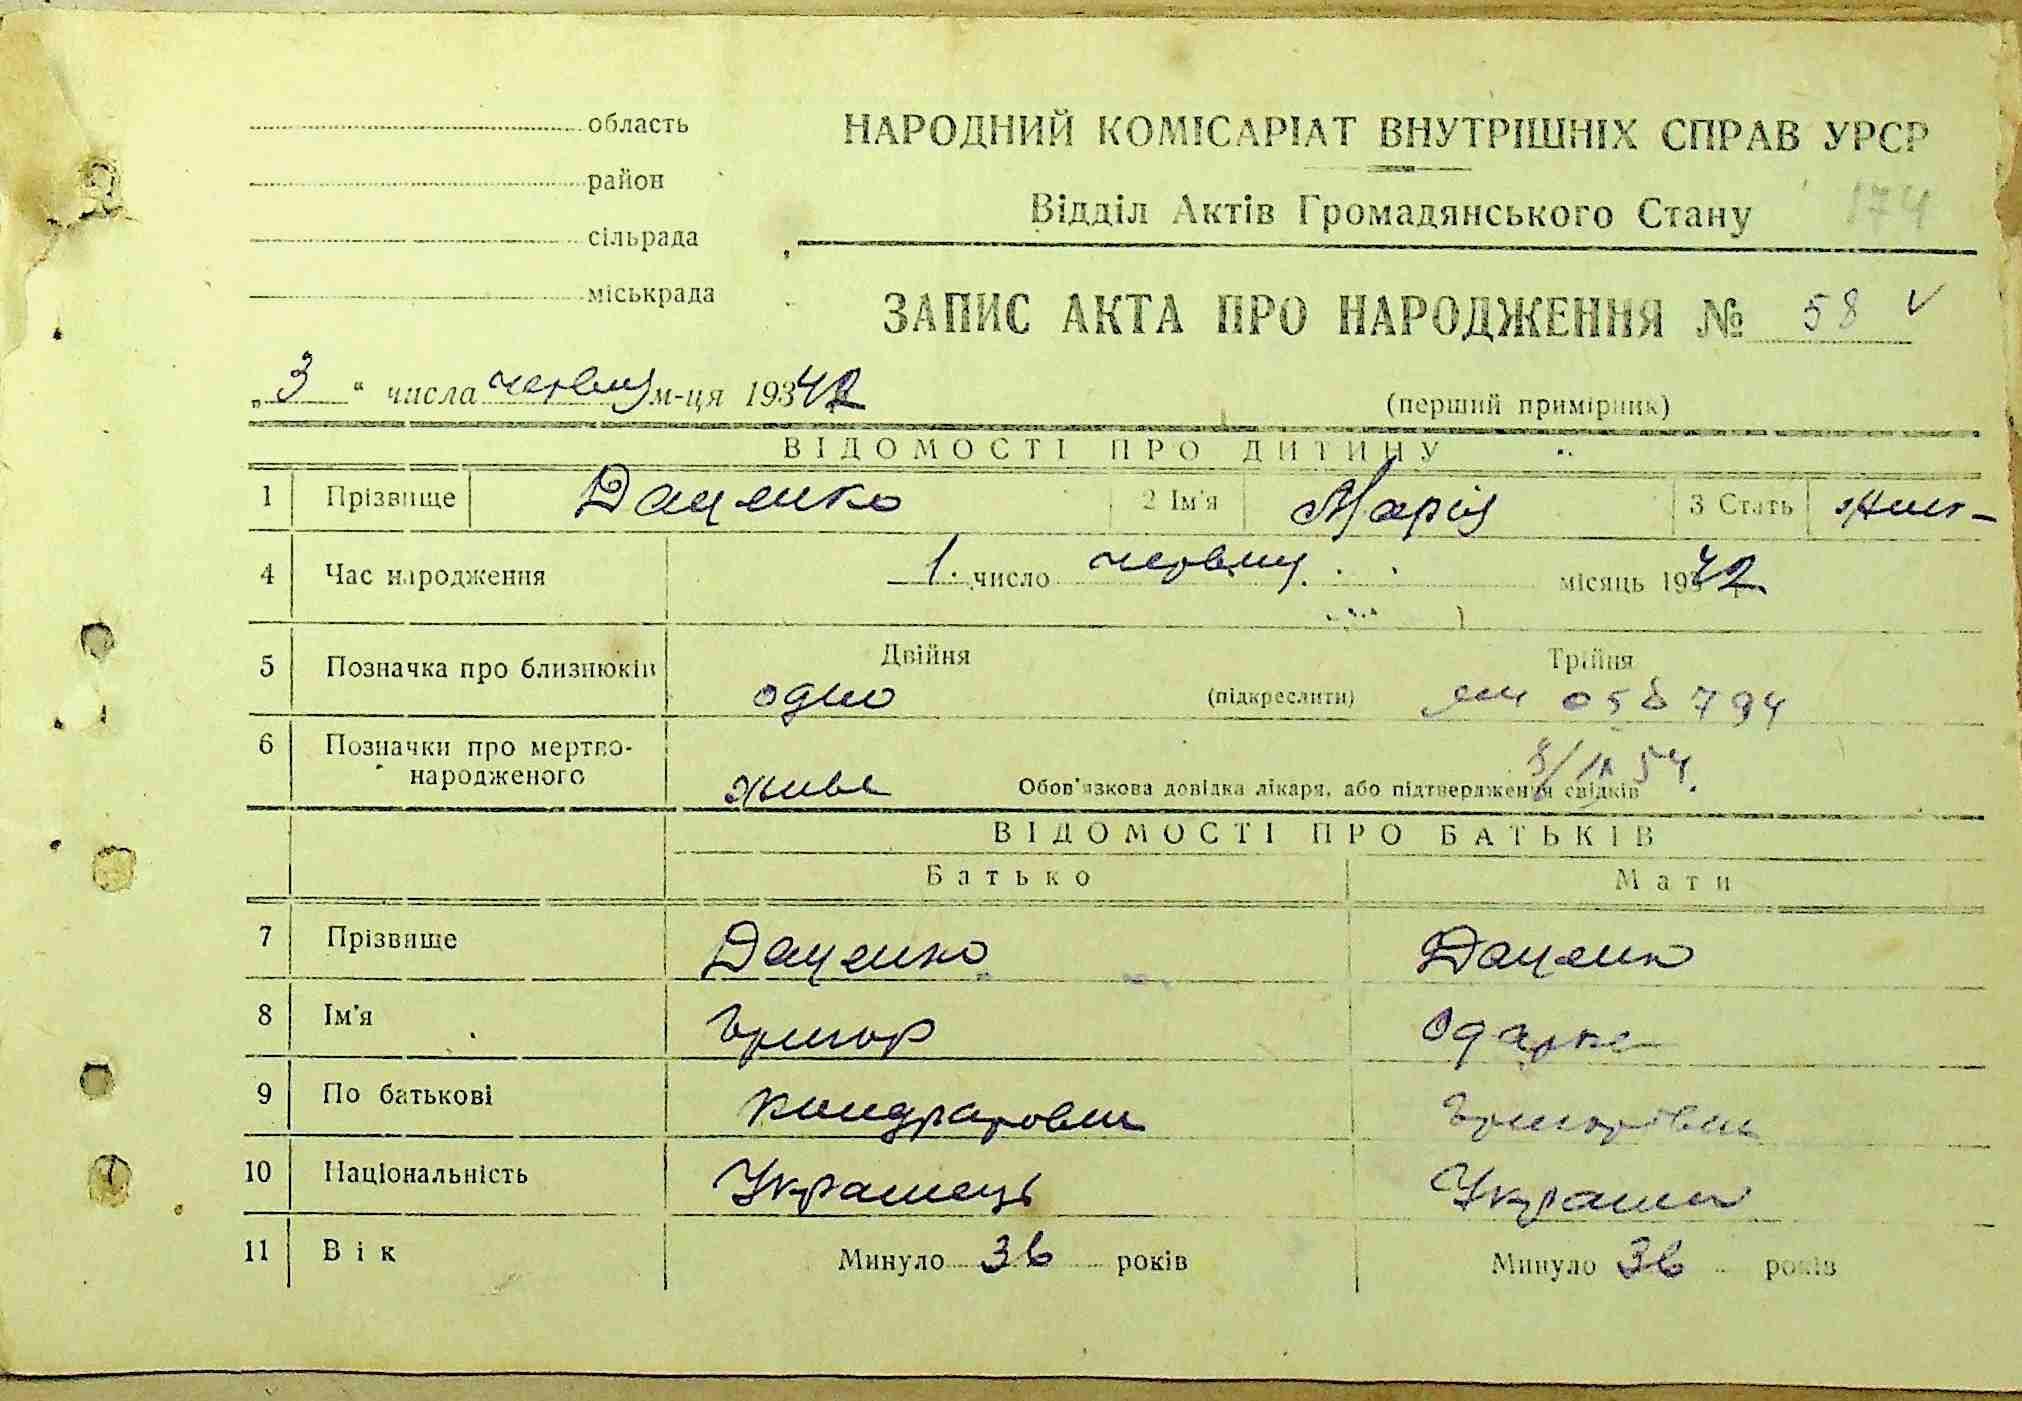 область
район
сільрада
міськрада
НАРОДНИЙ КОМІСАРІАТ ВНУТРІШНІХ СПРАВ УРСР
Відділ Актів Громадянського Стану 174
ЗАПИС АКТА ПРО НАРОДЖЕННЯ № 58 v
„3“ числа червня м-ця 19342
(перший примірник)
ВІДОМОСТІ ПРО ДИТИНУ
1 Прізвище Даценко 2 Ім'я Марія 3 Стать жін-
4 Час народження 1. число червня місяць 1942
5 Позначка про близнюків Двійня Трійня
одно (підкреслити) 058794
6 Позначки про мертво-
народженого живе Обов'язкова довідка лікаря, або підтвердження свідків
8/IX 54.
ВІДОМОСТІ ПРО БАТЬКІВ
Батько Мати
7 Прізвище Даценко Даценко
8 Ім'я Григор Одарка
9 По батькові Кондратович Григорівна
10 Національність Українець Українка
11 Вік Минуло 36 років Минуло 36 років